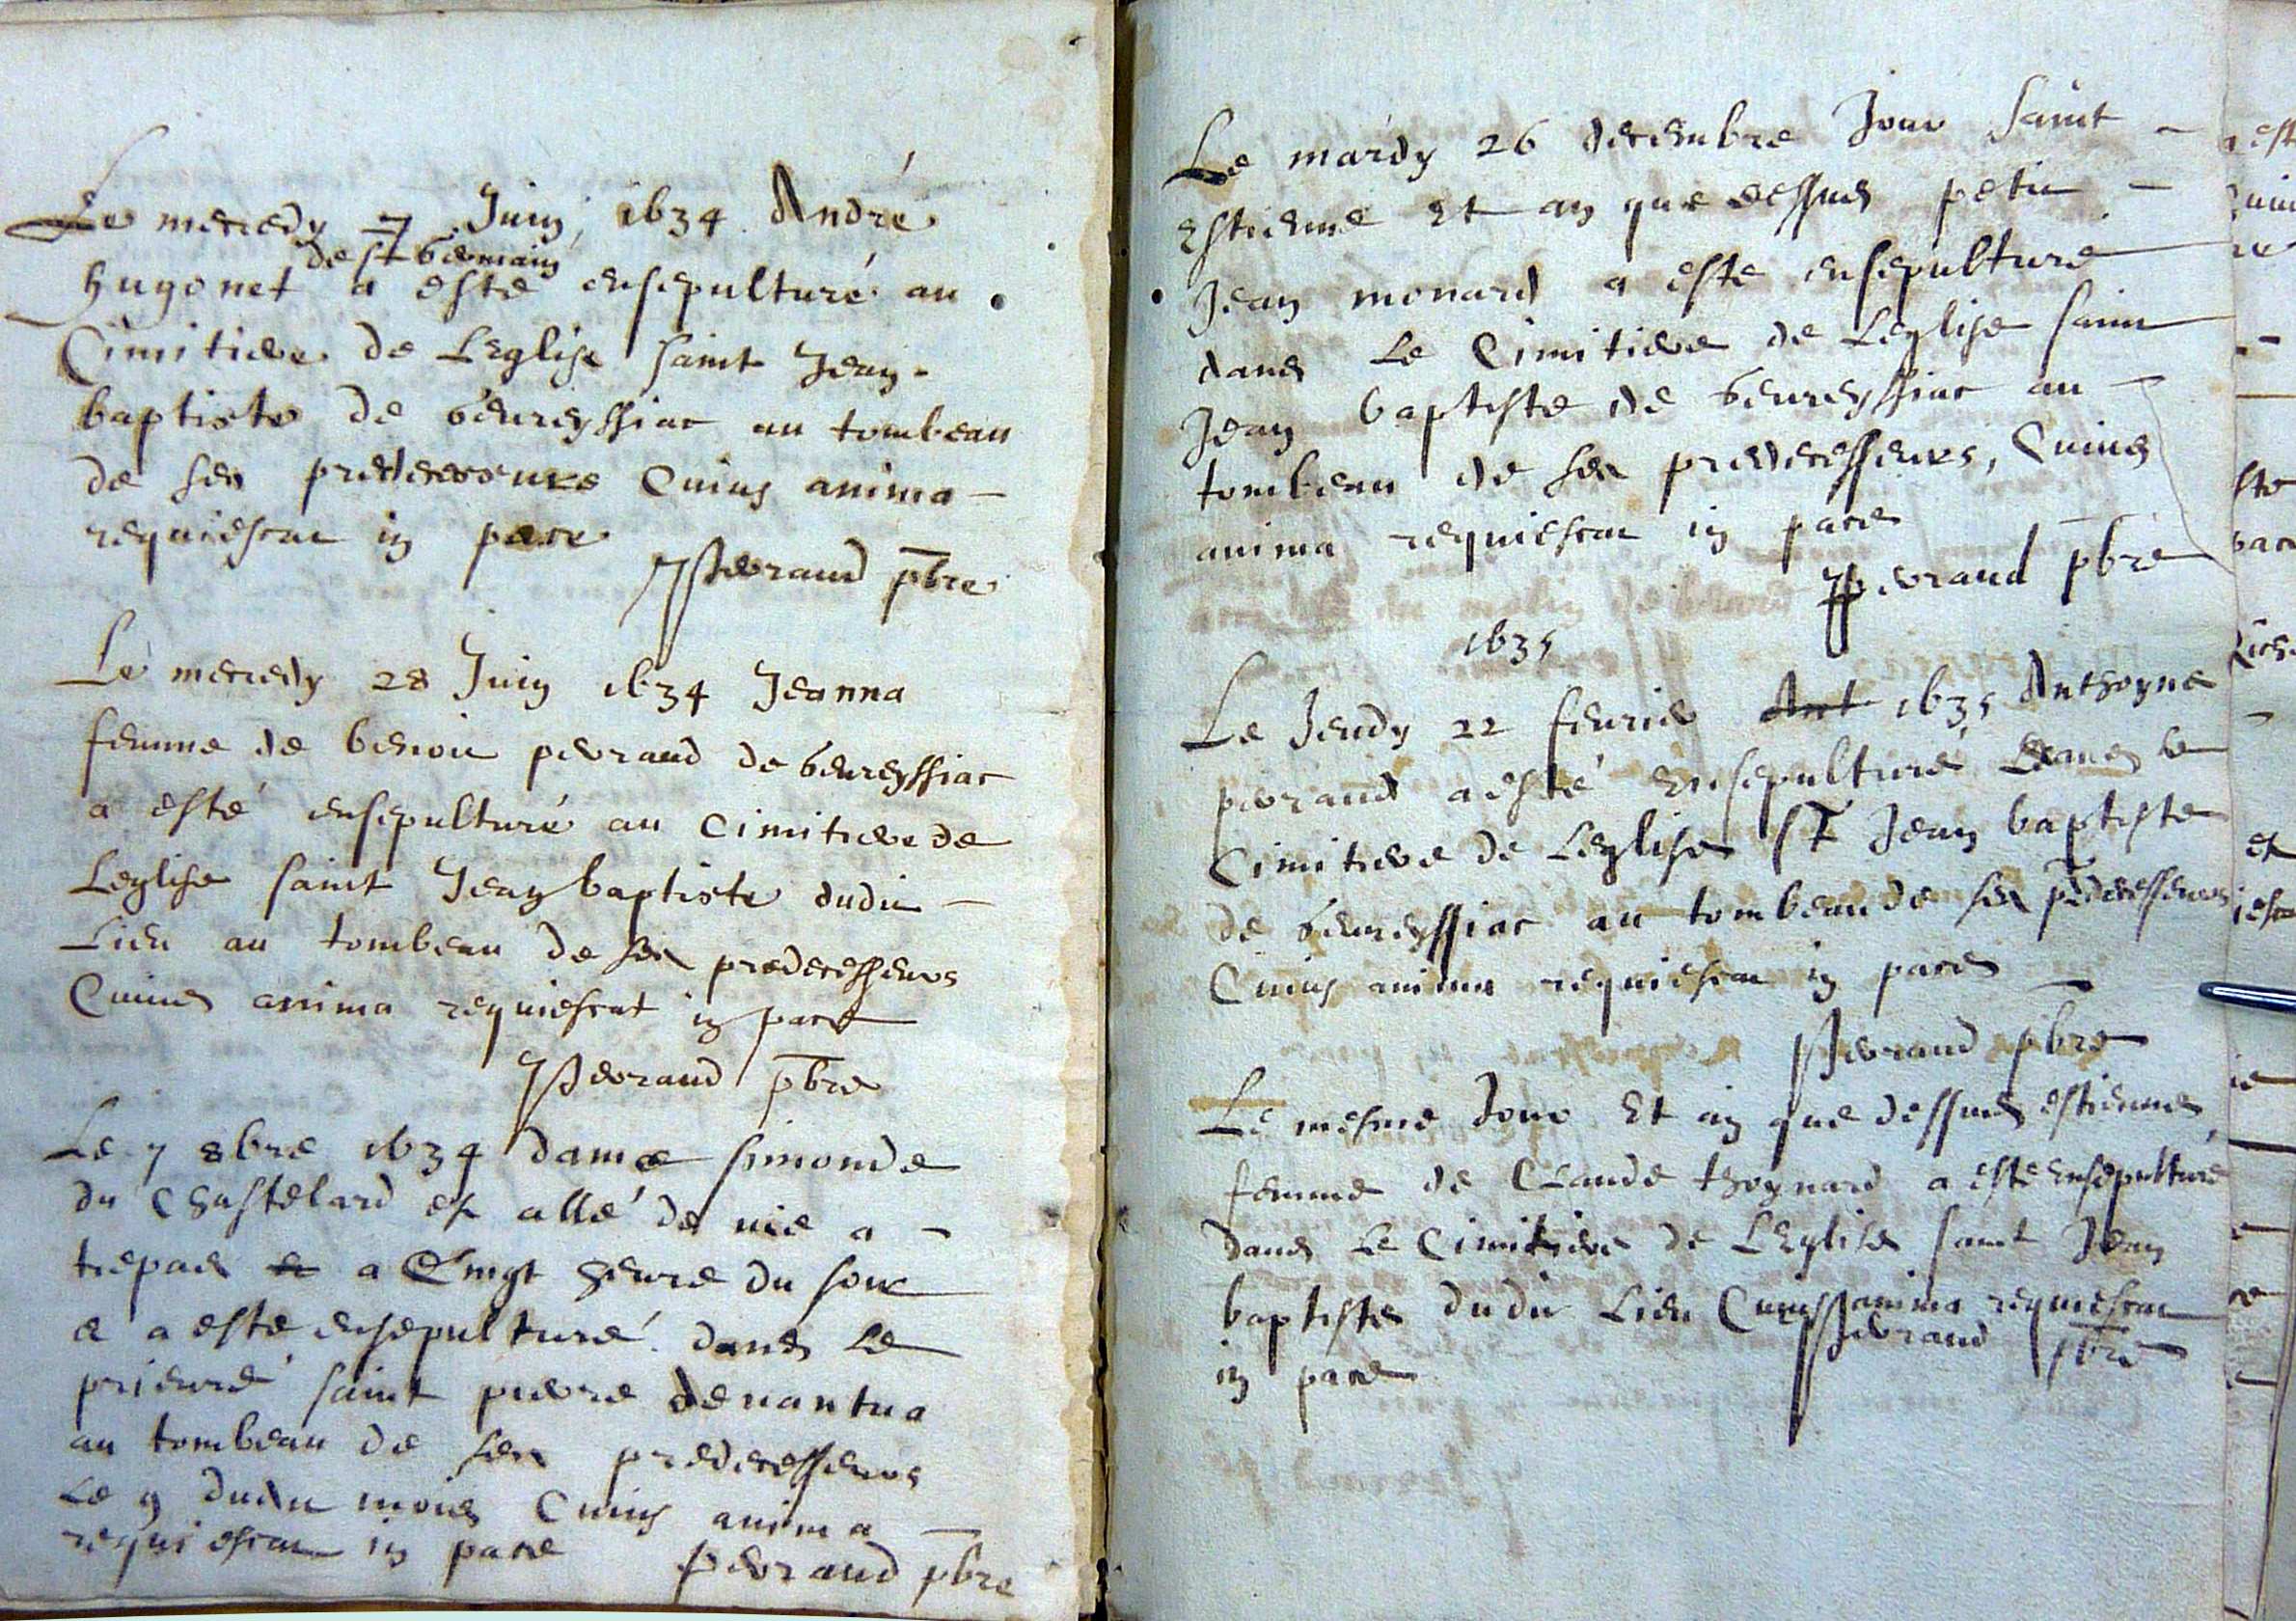 Le mecredy 7 Juin, 1634 André
de st germain
hugonet a esté ensepulturé au
Cimitiere de LEglise saint Jean
baptiste de geureyssiac au tombeau
de ses predecesseurs Cuius anima
requiescat in pace
Perraud pbre
Le mecredy 28 Juin 1634 Jeanna
femme de benoit perraud de geureyssiac
a esté ensepulturé au Cimitiere de
Leglise saint Jean baptiste dudit
Lieu au tombeau de ses predecesseurs
Cuius anima requiescat in pace
JPerraud pbre
Le 7 8bre 1634 dame simonde
du Chastelard est allé de vie a
trepas et a Vingt heure du soir
e a este ensepulturé dans Le
prieuré saint pierre de nantua
au tombeau de ses predecesseurs
Le 9 dudit mois Cuius anima
requiescat in pace Perraud pbre
Le mardy 26 decembre Jour saint
Estienne Et an que dessus petit
Jean monard a este ensepulture
dans Le Cimitiere de Leglise saint
Jean baptiste de geureyssiac au
tombeau de ses predecesseurs, Cuius
anima requiescat in pace
JPerraud pbre
1635
Le Jeudy 22 feurier Ant 1635 Anthoyne
perraud a esté Ensepulturé dans le
Cimitiere de Leglise st Jean baptiste
de geureyssiac au tombeau de ses pdecesseurs
Cuius anima requiescat in pace
Perraud pbre
Le mesme Jour Et an que dessus estienne
femme de Claude thoynard a este Ensepulturé
dans Le Cimitiere de LEglise saint Jean
baptiste dudit Lieu Cuius anima requiescat
in pace Perraud pbre